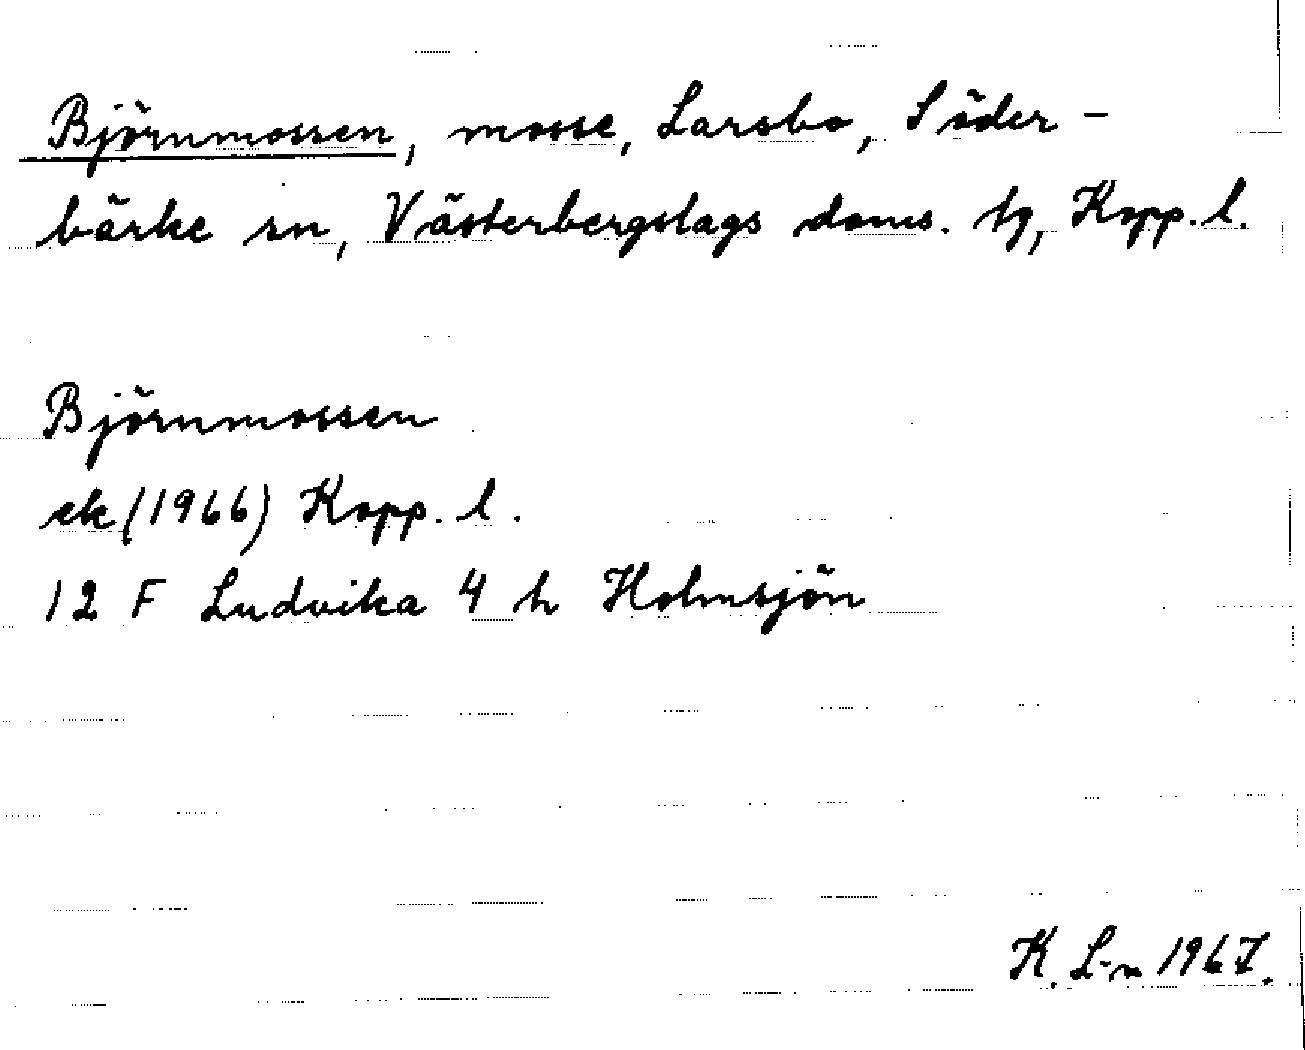 Björnmossen, mosse, Larsbo, Söder-
bärke sn, Västerbergslags doms. tg, Kopp. l.
Björnmossen
ek (1966) Kopp. l.
12 F Ludvika 4 h Holmsjön
K. L-n 1967.